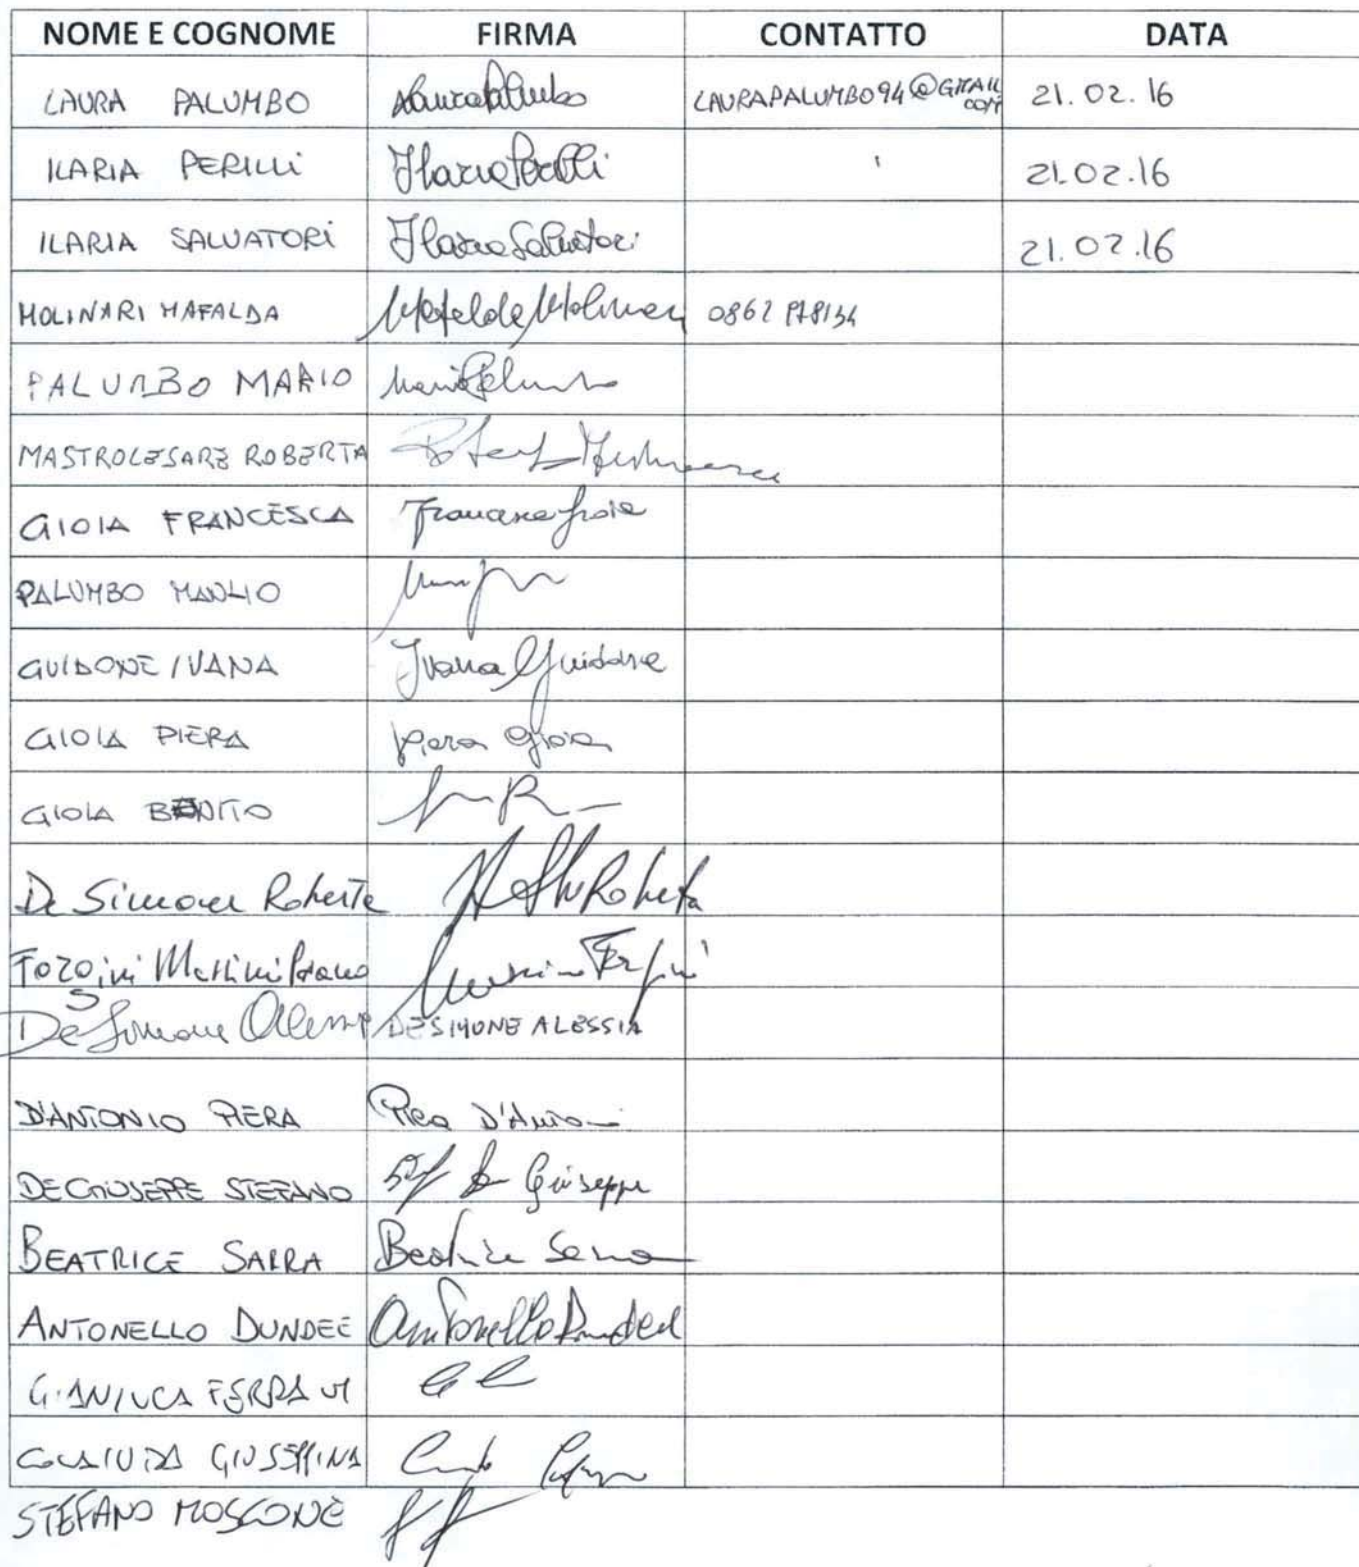 NOME E COGNOME FIRMA CONTATTO DATA
LAURA PALUMBO Laura Palumbo LAURAPALUMBO94@GMAIL COM 21.02.16
ILARIA PERILLI Ilaria Perilli 21.02.16
ILARIA SALVATORI Ilaria Salvatori 21.02.16
MOLINARI MAFALDA Mafalda Molinari 0862
PALUMBO MARIO Mario Palumbo
MASTROCESARE ROBERTA
GIOIA FRANCESCA Francesca Gioia
PALUMBO MANLIO
GUIDONE IVANA Ivana Guidone
GIOIA PIERA Piera Gioia
GIOIA BENITO
De Simone Roberta Roberta
Forgini Massimiliano
De Simone Alessia DE SIMONE ALESSIA
D'ANTONIO PIERA Piera D'Antonio
DE GIUSEPPE STEFANO De Giuseppe
BEATRICE SARRA Beatrice Sarra
ANTONELLO DUNDEE Antonello Dundee
GIANLUCA
GIUSEPPINA
STEFANO MOSCONE